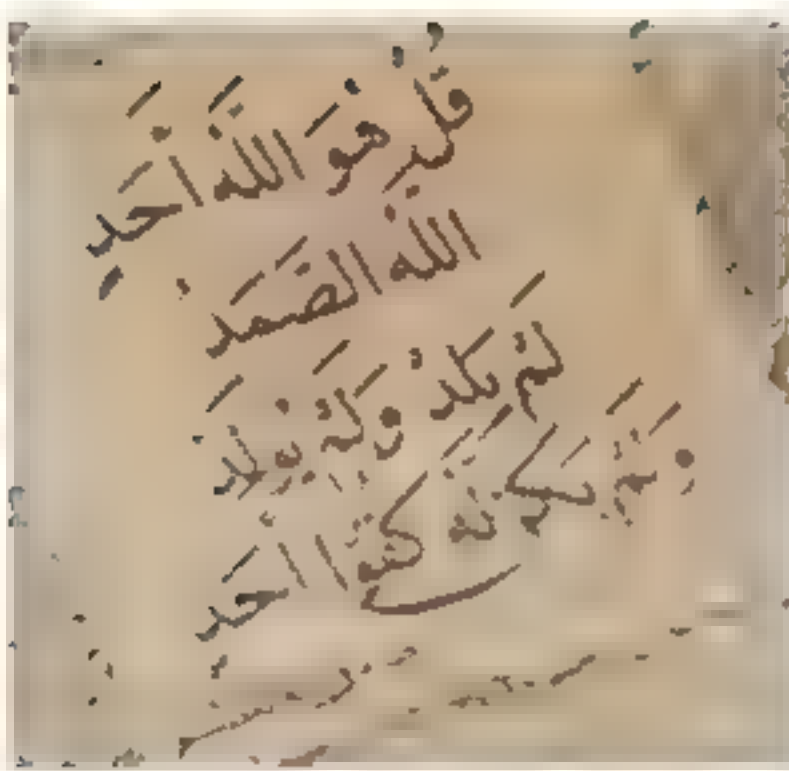 قل هو الله أحد
الله الصمد
لم يلد ولم يولد
ولم يكن له كفوا احد